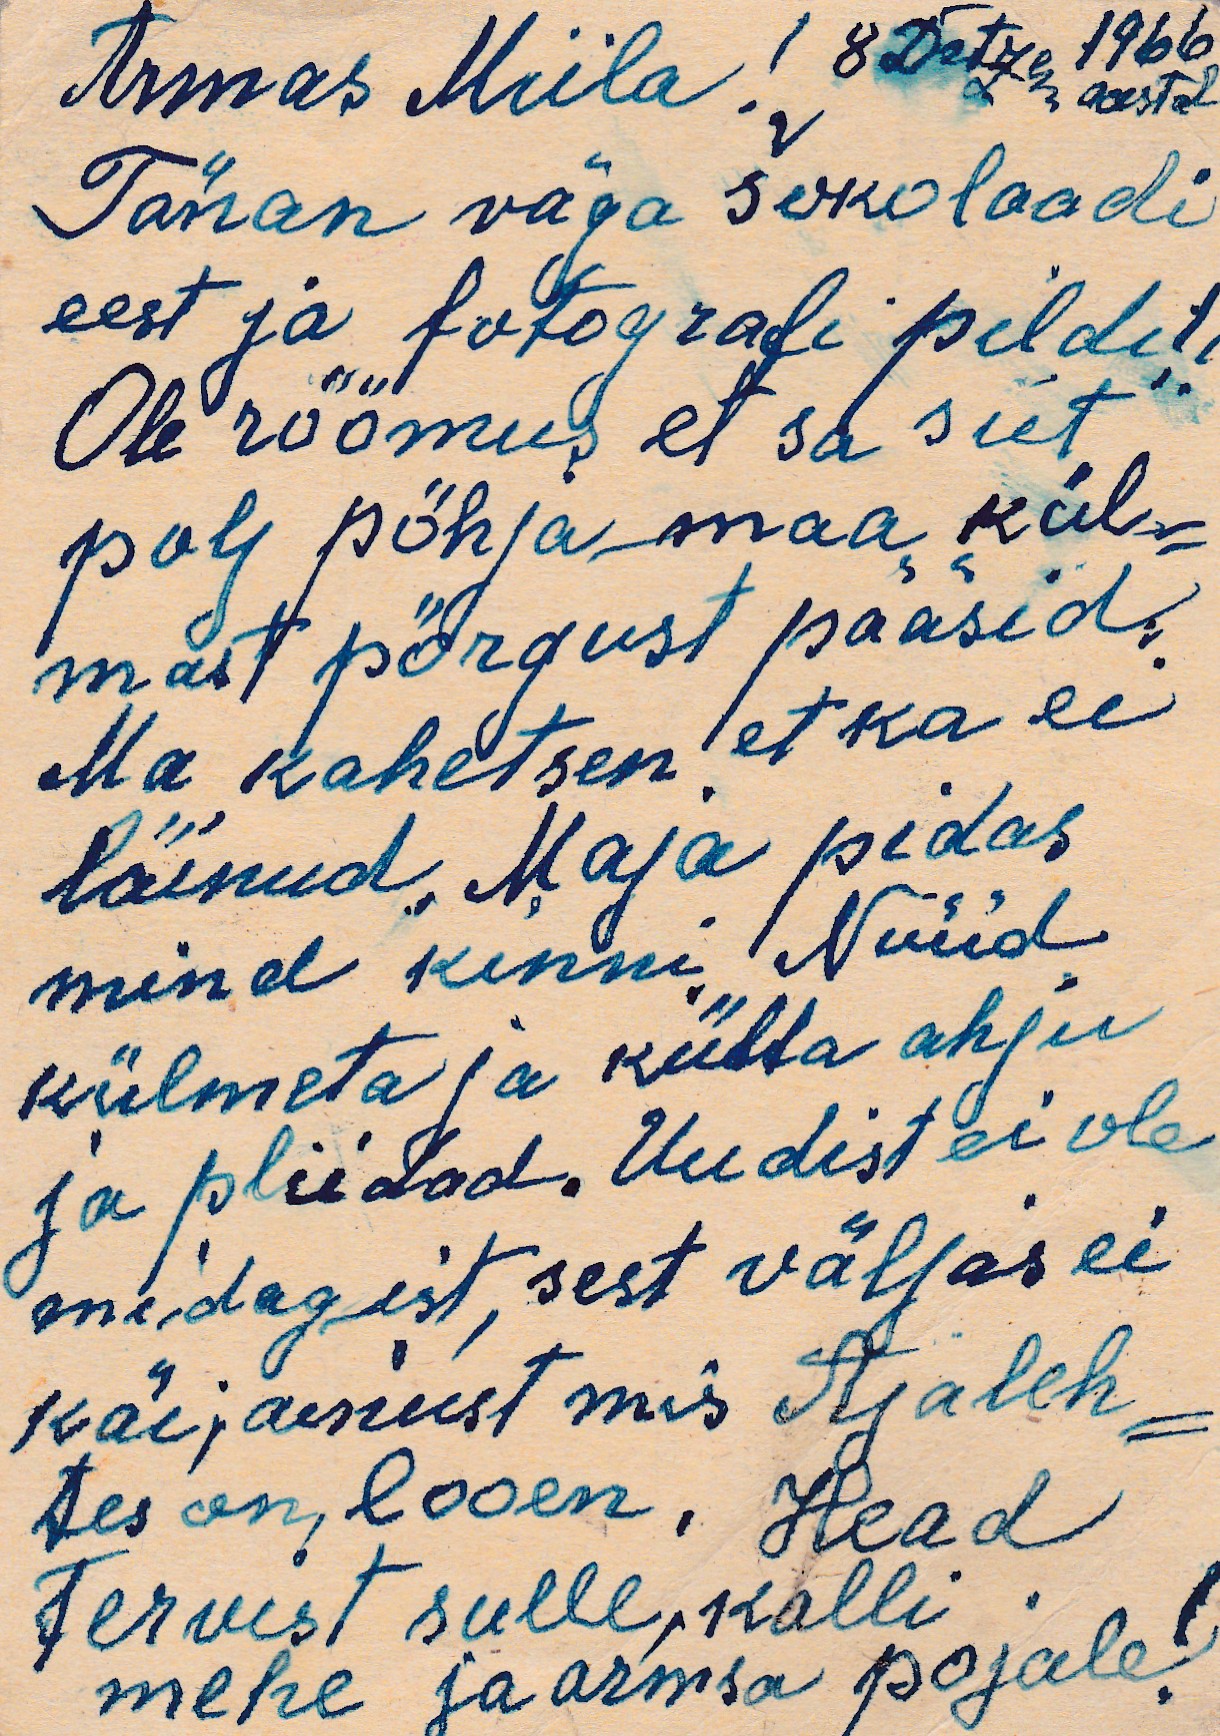 Armas Miila! 8 Detze 1966
aastal
Tänan väga šukolaadi
eest ja fotografi pildi!!
Ole röömus et sa siit
polj pöhja-maa kül=
mast pörgust pääsid.
Ma kahetsen, et ka ei
läinud. Maja pidas
mind kinni. Nuüd
külmeta ja kütta ahju
ja pliidad. Uudist ei ole
midagist, sest väljas ei
käi, ainust mis Ajaleh=
tes on, looen. Head
Tervist sulle, kalli
mehe ja armsa pojale!